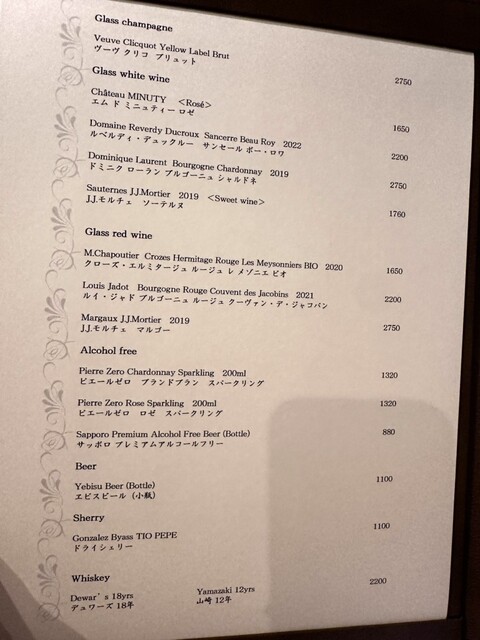 Glass champagne
Veuve Clicquot Yellow Label Brut
ヴーヴ クリコ ブリュット 2750
Glass white wine
Château MINUTY <Rosé>
エム ド ミニュティー ロゼ 1650
Domaine Reverdy Ducroux Sancerre Beau Roy 2022
ルベルディ・デュックルー サンセール ボー・ロワ 2200
Dominique Laurent Bourgogne Chardonnay 2019
ドミニク ローラン ブルゴーニュ シャルドネ 2750
Sauternes J.J.Mortier 2019 <Sweet wine>
J.J.モルチェ ソーテルヌ 1760
Glass red wine
M.Chapoutier Crozes Hermitage Rouge Les Meysonniers BIO 2020
クローズ・エルミタージュ ルージュ レ メゾニエ ビオ 1650
Louis Jadot Bourgogne Rouge Couvent des Jacobins 2021
ルイ・ジャド ブルゴーニュ ルージュ クーヴァン・デ・ジャコバン 2200
Margaux J.J.Mortier 2019
J.J.モルチェ マルゴー 2750
Alcohol free
Pierre Zero Chardonnay Sparkling 200ml 1320
ピエールゼロ ブランドブラン スパークリング
Pierre Zero Rose Sparkling 200ml 1320
ピエールゼロ ロゼ スパークリング
Sapporo Premium Alcohol Free Beer (Bottle) 880
サッポロ プレミアムアルコールフリー
Beer
Yebisu Beer (Bottle) 1100
エビスビール (小瓶)
Sherry
Gonzalez Byass TIO PEPE 1100
ドライシェリー
Whiskey
Dewar's 18yrs Yamazaki 12yrs 2200
デュワーズ 18年 山崎 12年